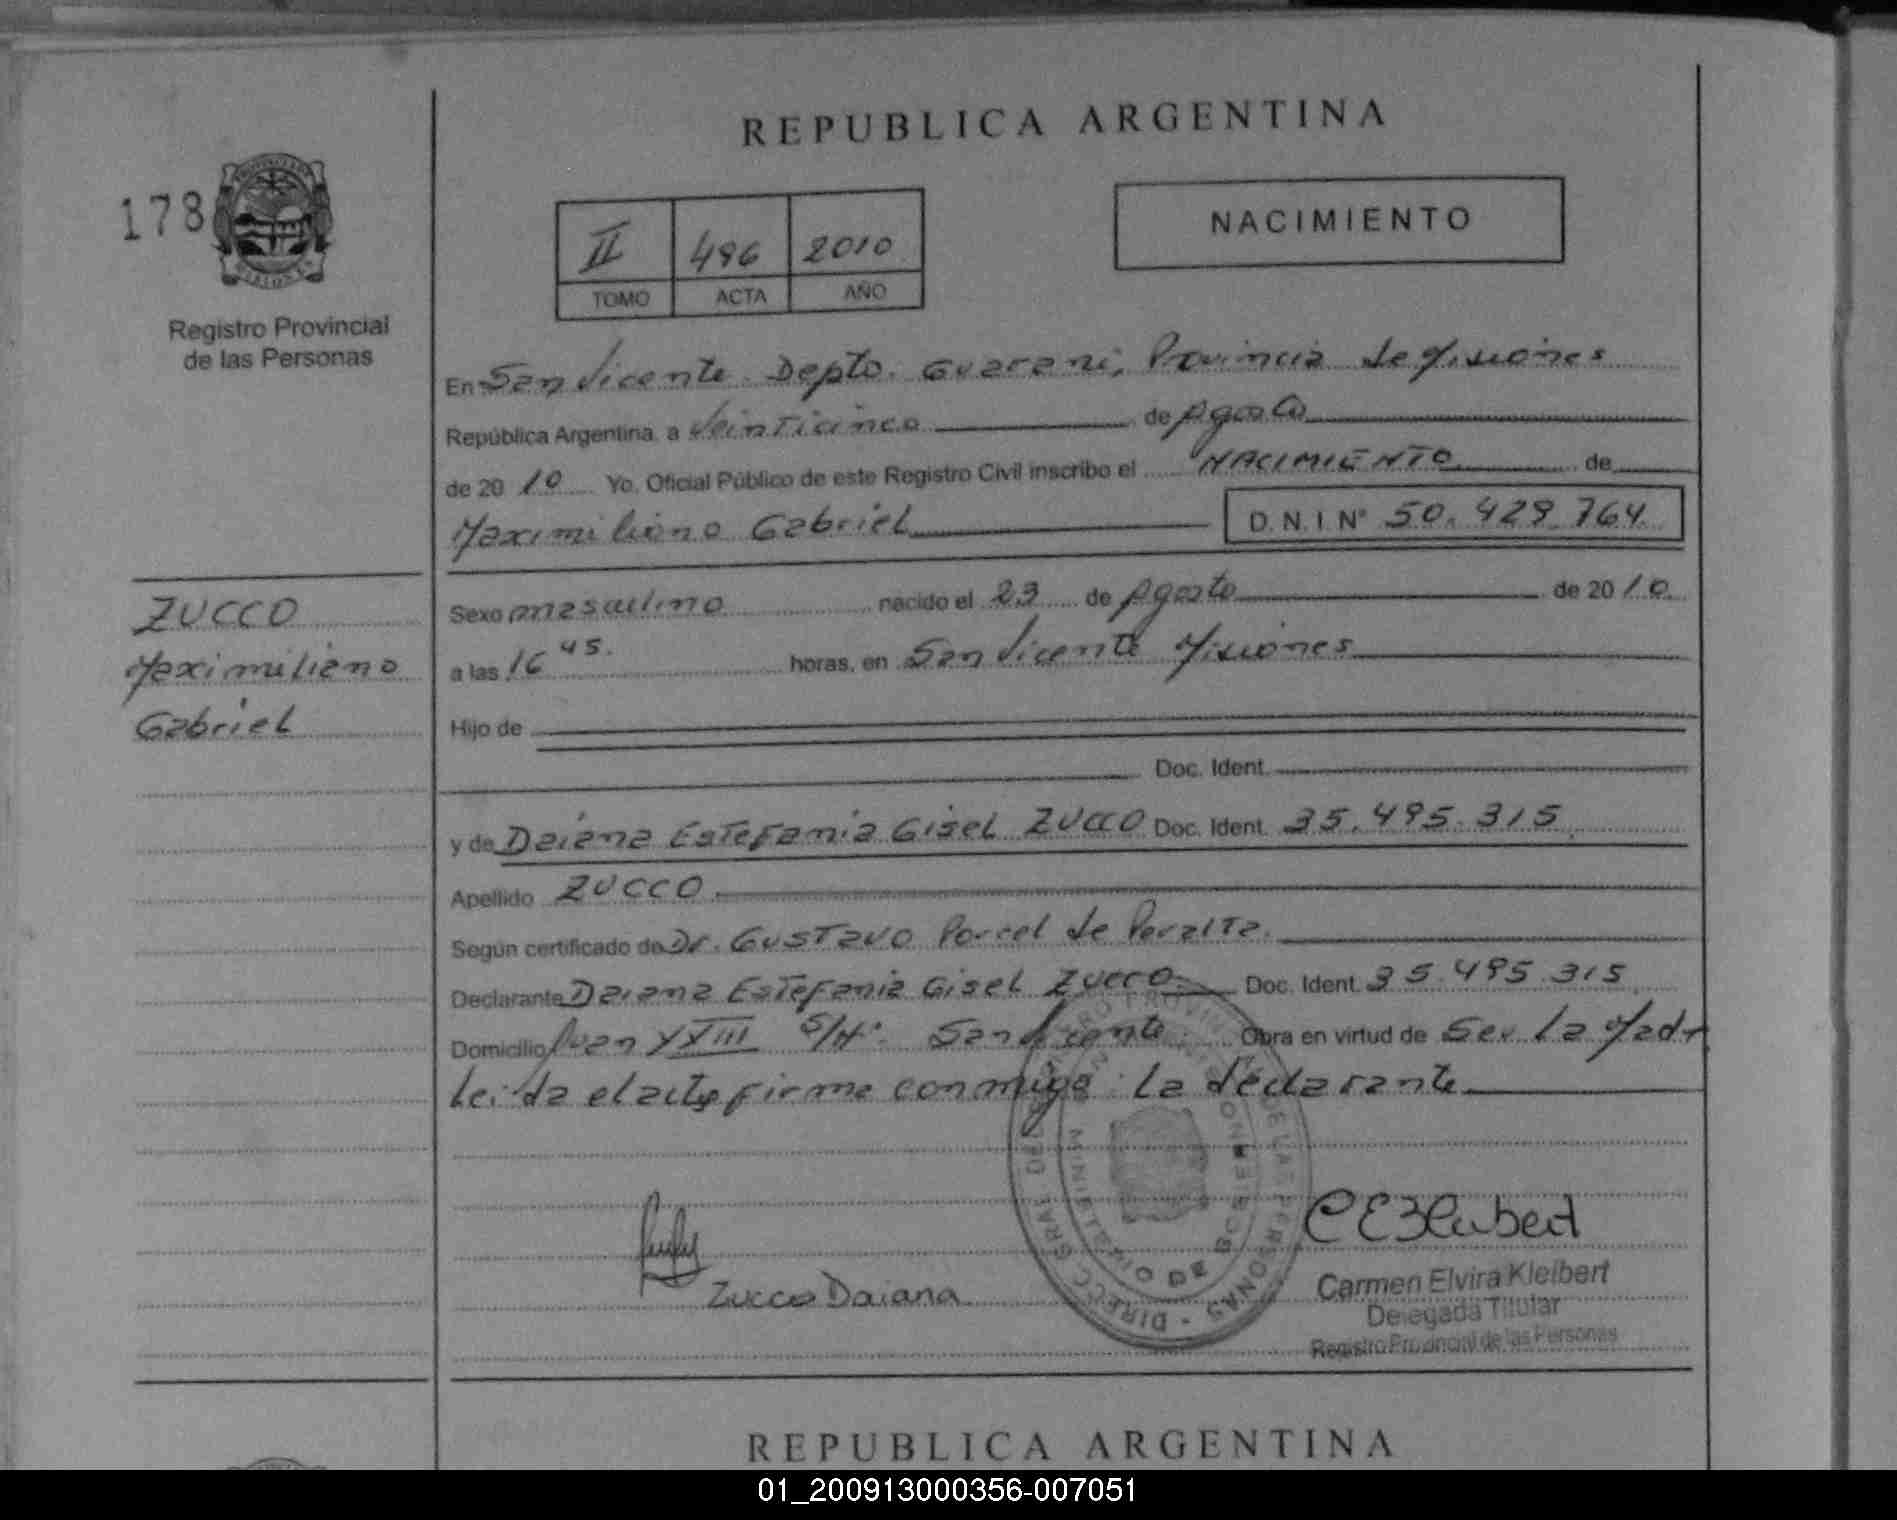 REPUBLICA ARGENTINA
178
NACIMIENTO
II 496 2010
TOMO ACTA AÑO
Registro Provincial
de las Personas
En San Vicente Depto. Guarani, Provincia de Misiones
República Argentina, a veinticinco de Agosto
de 2010 Yo, Oficial Público de este Registro Civil inscribo el NACIMIENTO de
Maximiliano Gabriel D.N.I. N° 50.429.764
ZUCCO
Maximiliano
Gabriel
Sexo masculino nacido el 23 de Agosto de 2010
a las 16 45. horas, en San Vicente Misiones
Hijo de
Doc. Ident.
y de Daiana Estefania Gisel ZUCCO Doc. Ident. 35.495.315
Apellido ZUCCO
Según certificado de Dr. Gustavo Porcel de Peralta.
Declarante Daiana Estefania Gisel Zucco. Doc. Ident. 35.495.315
Domicilio Juan XXIII S/N° San Vicente. Obra en virtud de Ser la Madre
Leida el acta firma conmigo la declarante
DIRECC. GRAL. DEL REGISTRO PROVINCIAL DE LAS PERSONAS
MINISTERIO DE GOB
MISIONES
CEKleibert
Zucco Daiana
Carmen Elvira Kleibert
Delegada Titular
Registro Provincial de las Personas
REPUBLICA ARGENTINA
01_200913000356-007051